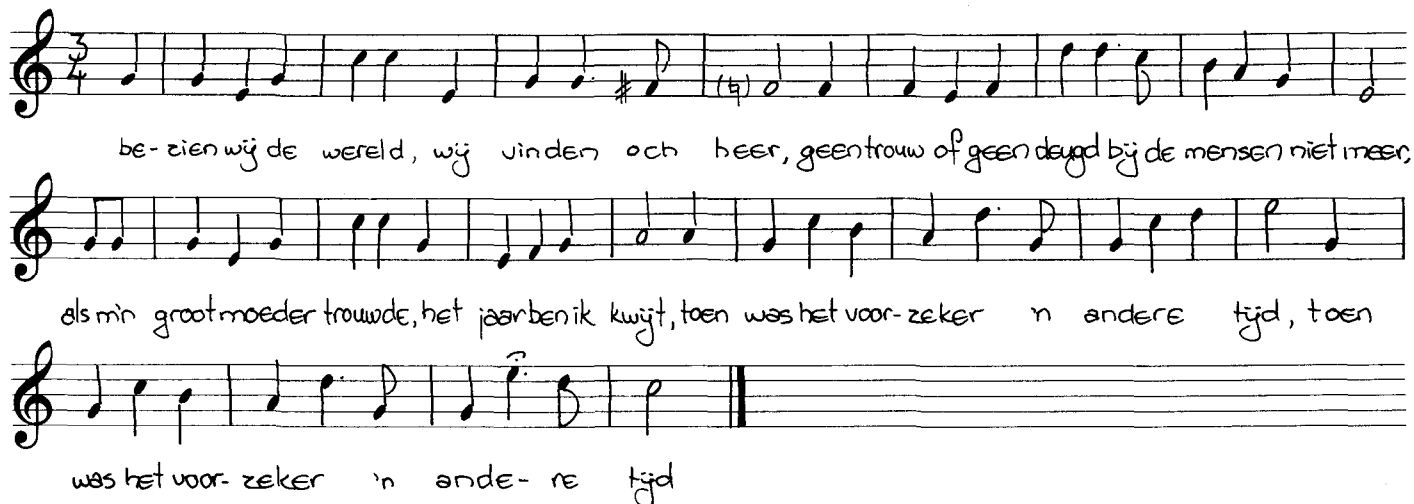 3/4
be-zien wij de wereld, wij vinden och heer, geen trouw of geen deugd bij de mensen niet meer,
als m'n grootmoeder trouwde, het jaar ben ik kwijt, toen was het voor-zeker 'n andere tijd, toen
was het voor-zeker 'n ande-re tijd